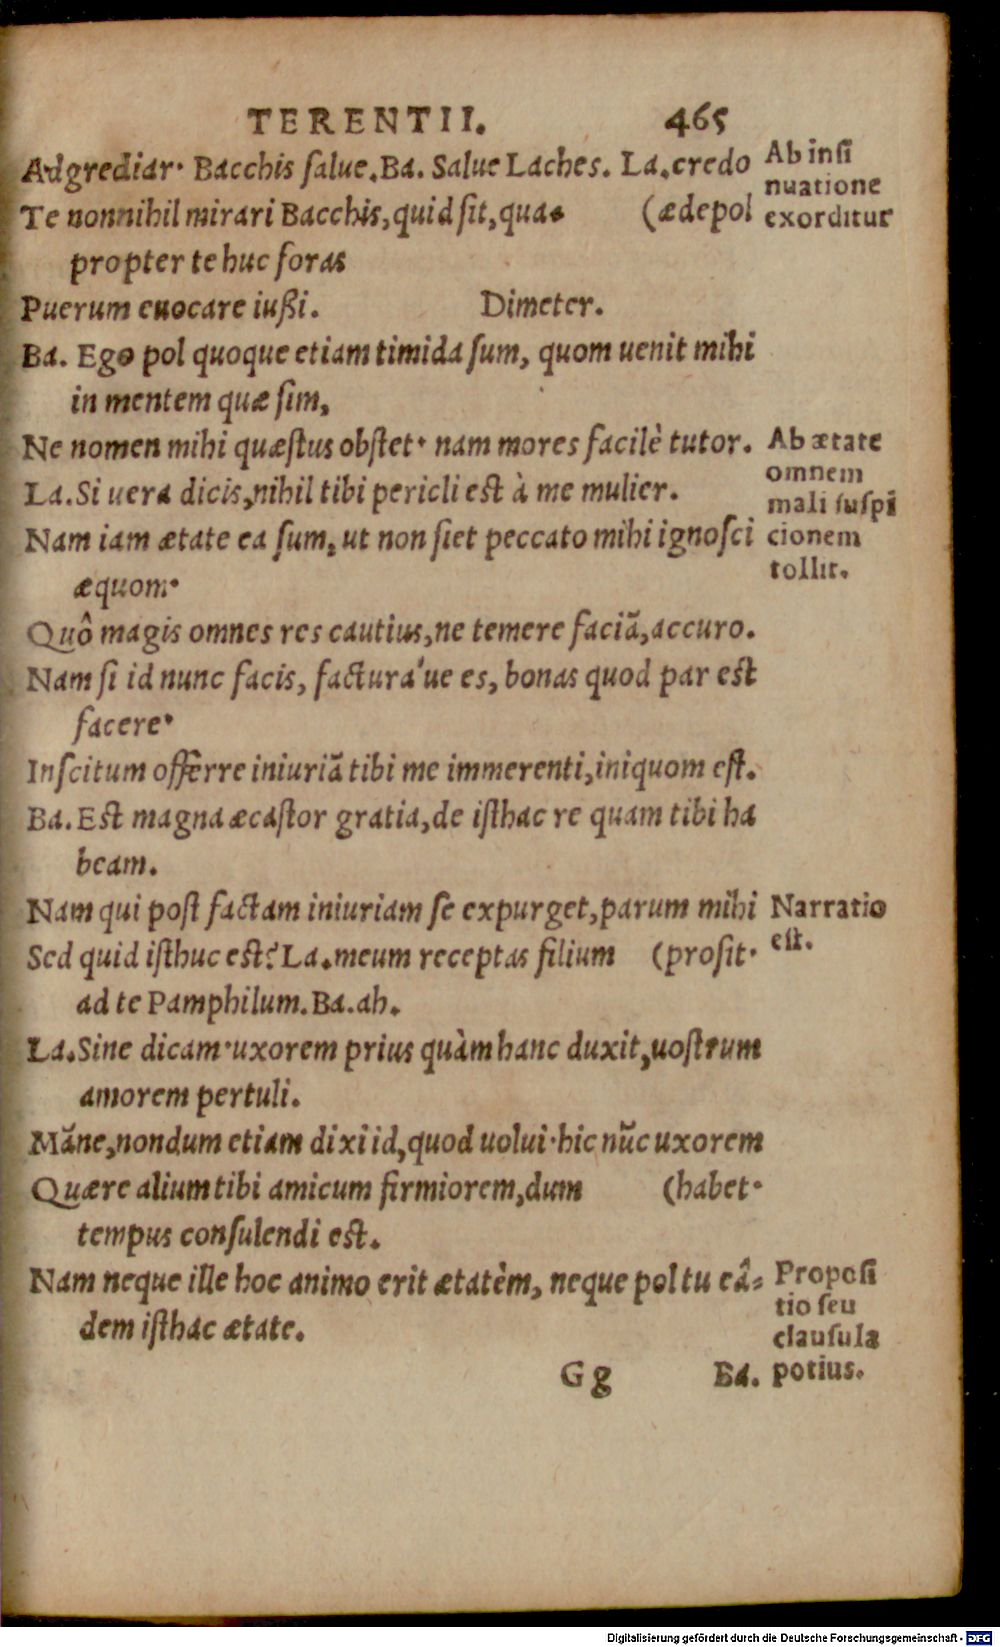 TERENTII. 465
Adgrediar· Bacchis ſalue. Ba. Salue Laches. La. credo
Te nonnihil mirari Bacchis, quid ſit, qua- (ædepol
propter te huc foras
Puerum euocare iußi. Dimeter.
Ba. Ego pol quoque etiam timida ſum, quom uenit mihi
in mentem quæ ſim,
Ne nomen mihi quæſtus obſtet· nam mores facilè tutor.
La. Si uera dicis, nihil tibi pericli est à me mulier.
Nam iam ætate ea ſum, ut non ſiet peccato mihi ignoſci
æquom·
Quô magis omnes res cautius, ne temere faciā, accuro.
Nam ſi id nunc facis, factura'ue es, bonas quod par est
facere·
Inſcitum offerre iniuriā tibi me immerenti, iniquom eſt.
Ba. Est magna æcaſtor gratia, de iſthac re quam tibi ha
beam.
Nam qui poſt factam iniuriam ſe expurget, parum mihi
Sed quid iſthuc est? La. meum receptas filium (proſit·
ad te Pamphilum. Ba. ah.
La. Sine dicam· uxorem prius quàm hanc duxit, uoſtrum
amorem pertuli.
Māne, nondum etiam dixi id, quod uolui· hic nūc uxorem
Quære alium tibi amicum firmiorem, dum (habet·
tempus conſulendi est.
Nam neque ille hoc animo erit ætatèm, neque pol tu eâ-
dem iſthac ætate.
Gg Ba.
Ab inſi
nuatione
exorditur
Ab ætate
omnem
mali ſuſpi
cionem
tollit.
Narratio
eſt.
Propoſi
tio ſeu
clauſula
potius.
Digitalisierung gefördert durch die Deutsche Forschungsgemeinschaft - DFG